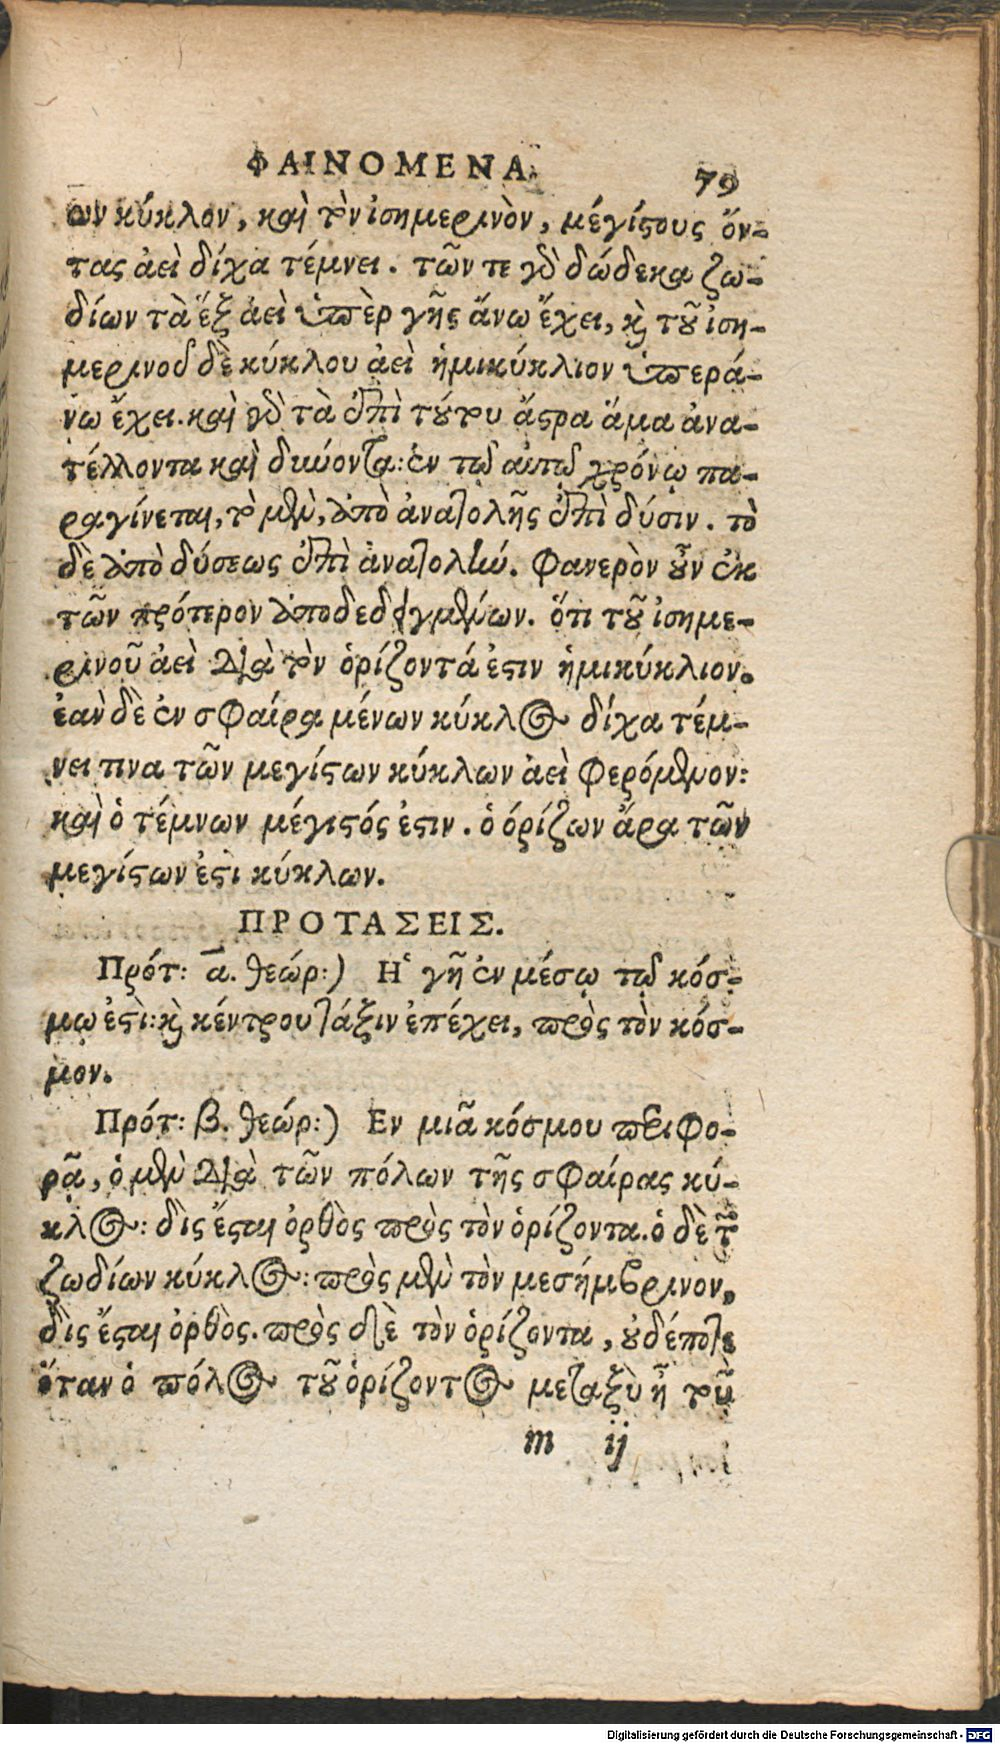 ΦΑΙΝΟΜΕΝΑ. 79
ων κύκλον, καὶ τὸν ἰσημερινὸν, μέγίϛους ὄν-
τας ἀεὶ δίχα τέμνει. τῶν τε γὸ δώδεκα ζω-
δίων τὰ ἕξ ἀεὶ ὑπὲρ γῆς ἄνω ἔχει, κὶ τοῦ ἰση-
μερινοῦ δὲ κύκλου ἀεὶ ἡμικύκλιον ὑπερά-
νω ἔχει. καὶ γὸ τὰ ἐπὶ τούτου ἄϛρα ἅμα ἀνα-
τέλλοντα καὶ δυνοντα: ἐν τῷ αὐτῷ χρόνῳ πα-
ραγίνεται, τὸ μὲν, ἀπὸ ἀνατολῆς ἐπὶ δύσιν. τὸ
δὲ ἀπὸ δύσεως ἐπὶ ἀνατολὴν. Φανερὸν οὖν ἐκ
τῶν πρότερον ἀποδεδειγμένων. ὅτι τοῦ ἰσημε-
ρινοῦ ἀεὶ διὰ τὸν ὁρίζοντά ἐϛιν ἡμικύκλιον.
ἐαν δὲ ἐν σφαίρᾳ μένων κύκλος δίχα τέμ-
νει τινα τῶν μεγίϛων κύκλων ἀεὶ φερόμενον:
καὶ ὁ τέμνων μέγιϛός ἐϛιν. ὁ ὁρίζων ἄρα τῶν
μεγίϛων ἐϛι κύκλων.
ΠΡΟΤΑΣΕΙΣ.
Πρότ: α. θεώρ:) Ἡ γῆ ἐν μέσῳ τῷ κόσ-
μῳ ἐϛὶ: κὶ κέντρου τάξιν ἐπέχει, πρὸς τὸν κόσ-
μον.
Πρότ: β. θεώρ:) Εν μιᾷ κόσμου περιφο-
ρᾷ, ὁ μὲν διὰ τῶν πόλων τῆς σφαίρας κύ-
κλος: δὶς ἔϛαι ὀρθὸς πρὸς τὸν ὁρίζοντα. ὁ δὲ τῶν
ζωδίων κύκλος: πρὸς μὲν τὸν μεσήμβρινον,
δὶς ἔϛαι ὀρθὸς. πρὸς δὲ τὸν ὁρίζοντα, οὐδέποτε
ὅταν ὁ πόλος τοῦ ὁρίζοντος μεταξὺ ᾖ τοῦ
m ij
Digitalisierung gefördert durch die Deutsche Forschungsgemeinschaft - DFG